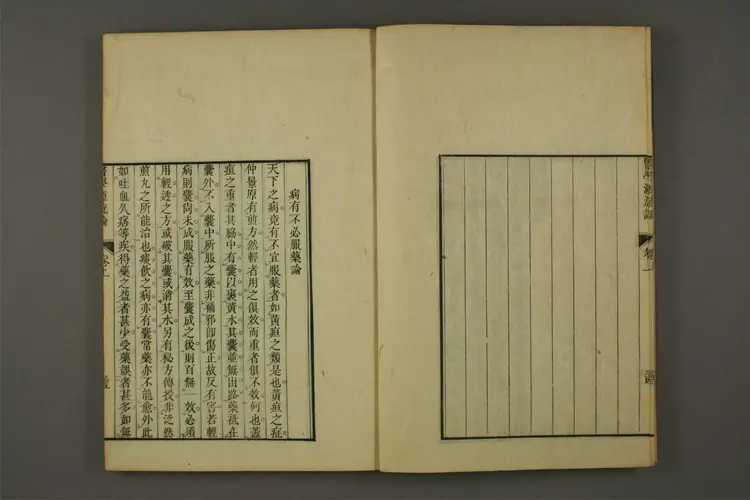 醫學源流論
卷上
病有不必服藥論
天下之病竟有不宜服藥者如黃疸之類是也黃疸之症
仲景原有煎方然輕者用之俱效而重者俱不效何也蓋
疸之重者其脇中有囊以裹黃水其囊並無出路藥祗在
囊外不入囊中所服之藥非補邪卽傷正故反有害若輕
病則囊尚未成服藥有效至囊成之後則百無一效必須
用輕透之方或破其囊或消其水另有秘方傳授非泛然
煎丸之所能治也痰飲之病亦有囊常藥亦不能愈外此
如吐血久痞等疾得藥之益者甚少受藥誤者甚多如無
醫學源流論
卷上